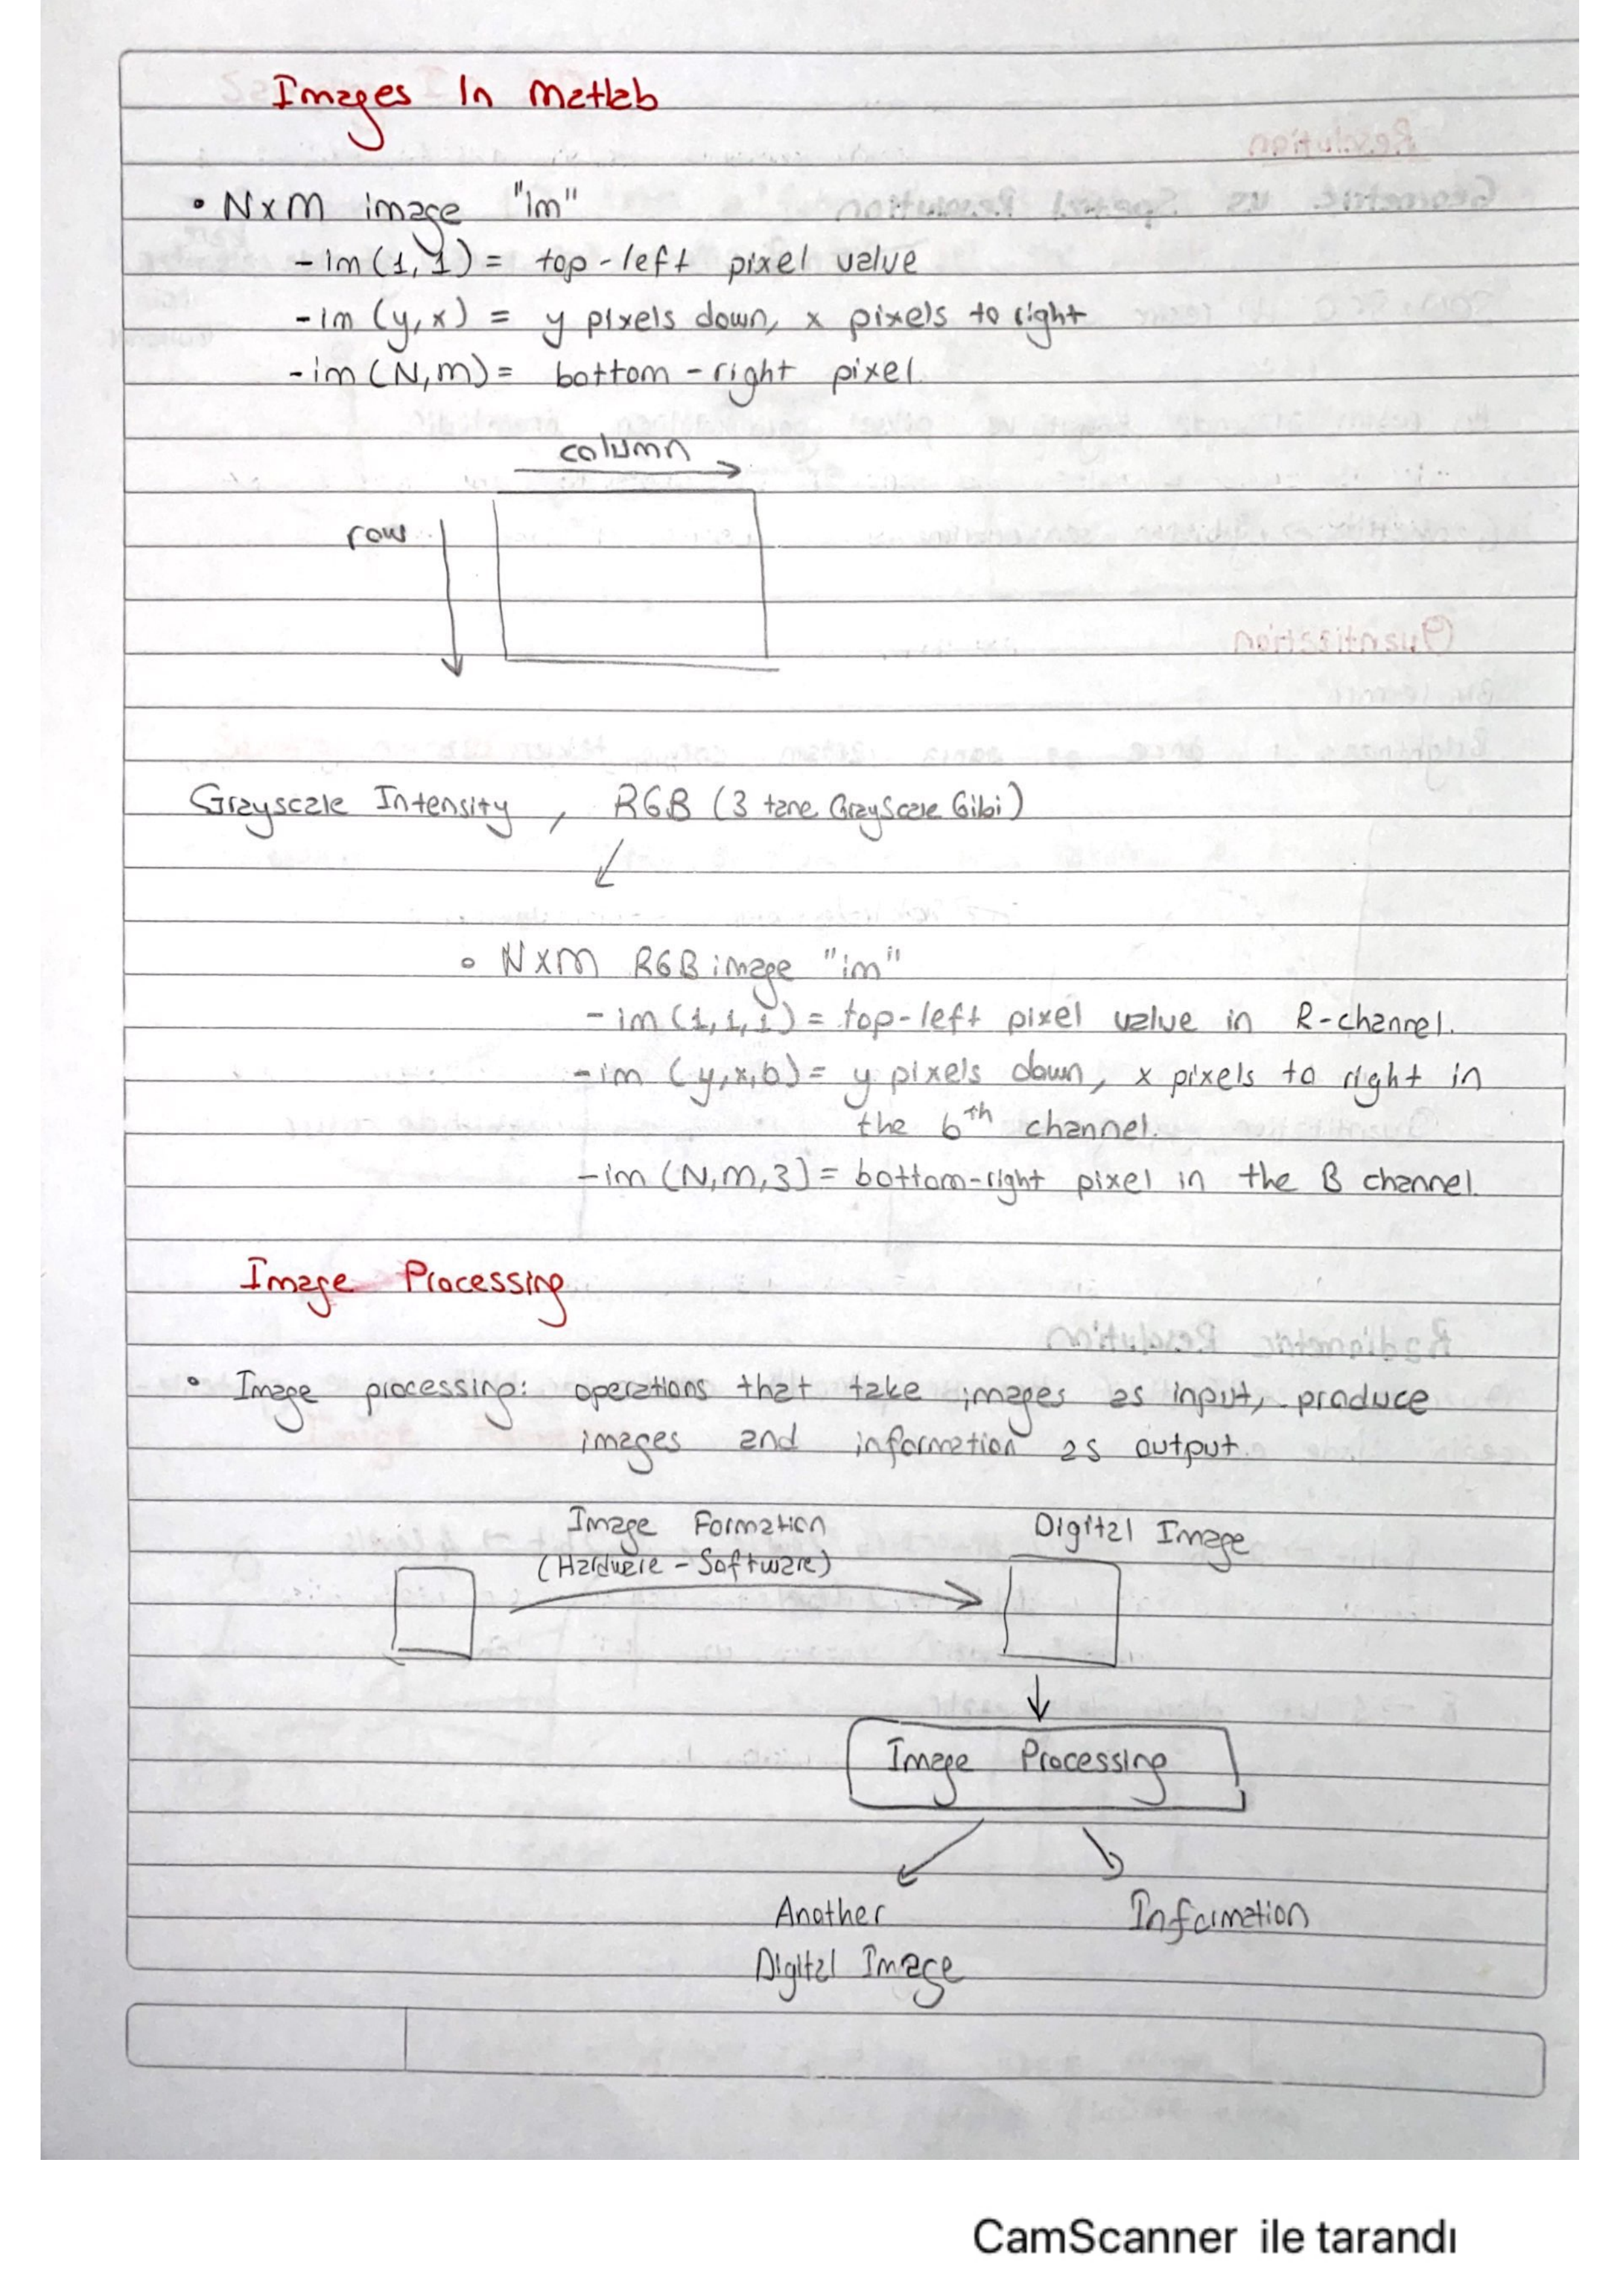 Images In Matlab
• NxM image "im"
- im (1,1) = top-left pixel value
- im (y,x) = y pixels down, x pixels to right
- im (N,M) = bottom-right pixel
column
row
Grayscale Intensity, RGB (3 tane GrayScale Gibi)
• NxM RGB image "im"
- im (1,1,1) = top-left pixel value in R-channel.
- im (y,x,b) = y pixels down, x pixels to right in
the bth channel.
- im (N,M,3) = bottom-right pixel in the B channel.
Image Processing
• Image processing: operations that take images as input, produce
images and information as output.
Image Formation
(Hardware - Software)
Digital Image
Image Processing
Another
Digital Image
Information
CamScanner ile tarandı